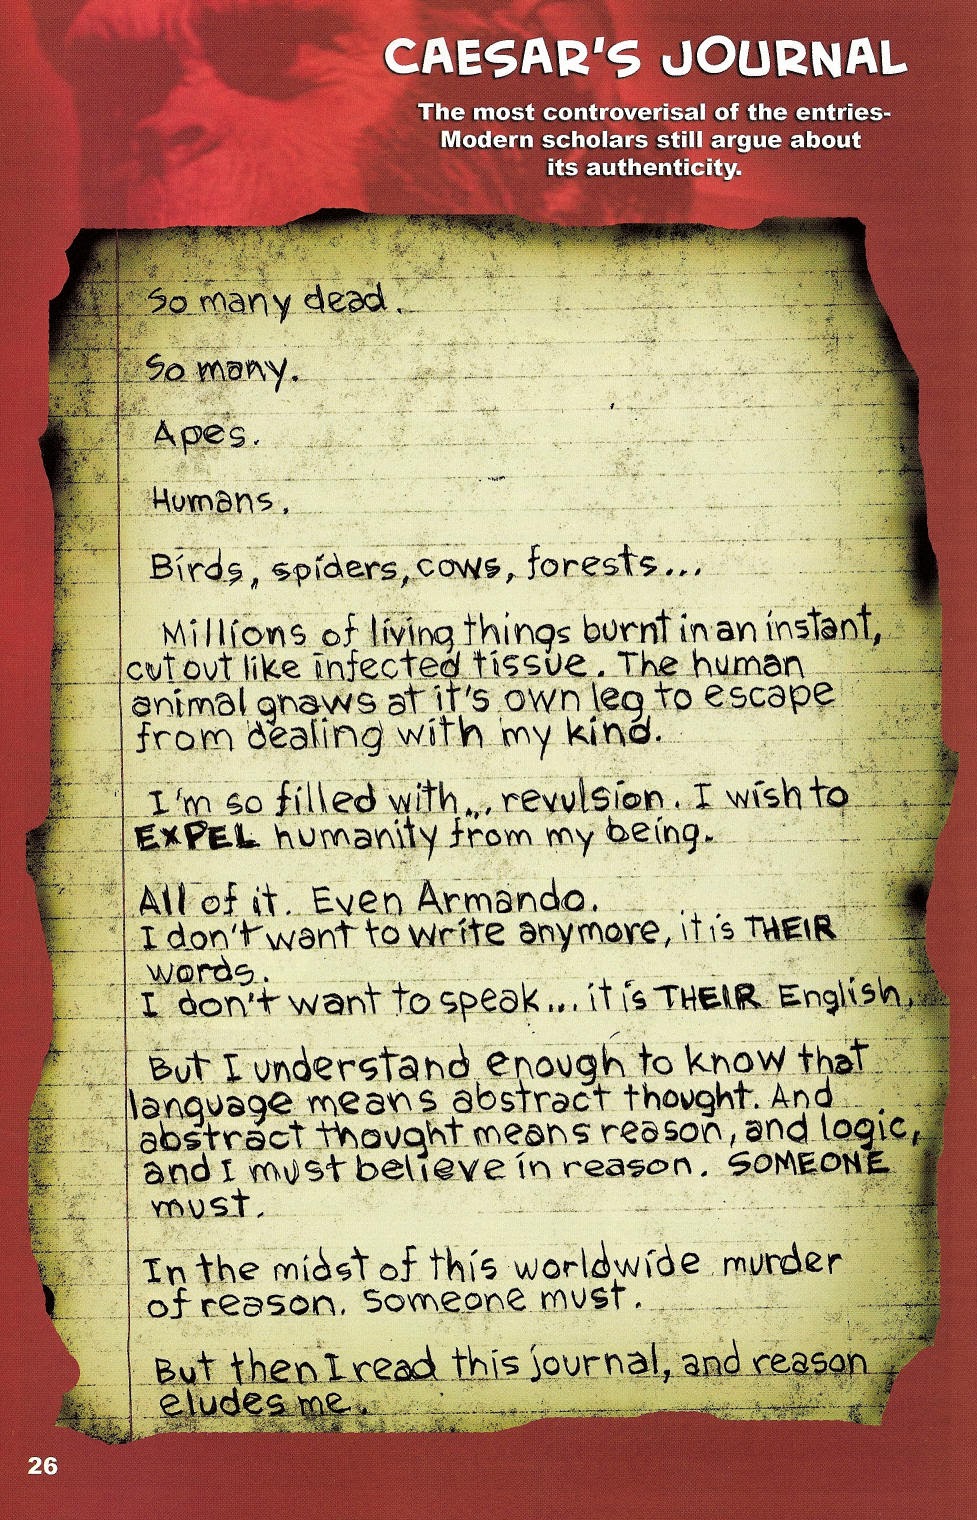 CAESAR'S JOURNAL
The most controverisal of the entries-
Modern scholars still argue about
its authenticity.
So many dead.
So many.
Apes.
Humans.
Birds, spiders, cows, forests...
Millions of living things burnt in an instant,
cut out like infected tissue. The human
animal gnaws at it's own leg to escape
from dealing with my kind.
I'm so filled with... revulsion. I wish to
EXPEL humanity from my being.
All of it. Even Armando.
I don't want to write anymore, it is THEIR
words.
I don't want to speak... it is THEIR English.
But I understand enough to know that
language means abstract thought. And
abstract thought means reason, and logic,
and I must believe in reason. SOMEONE
must.
In the midst of this worldwide murder
of reason. Someone must.
But then I read this journal, and reason
eludes me.
26